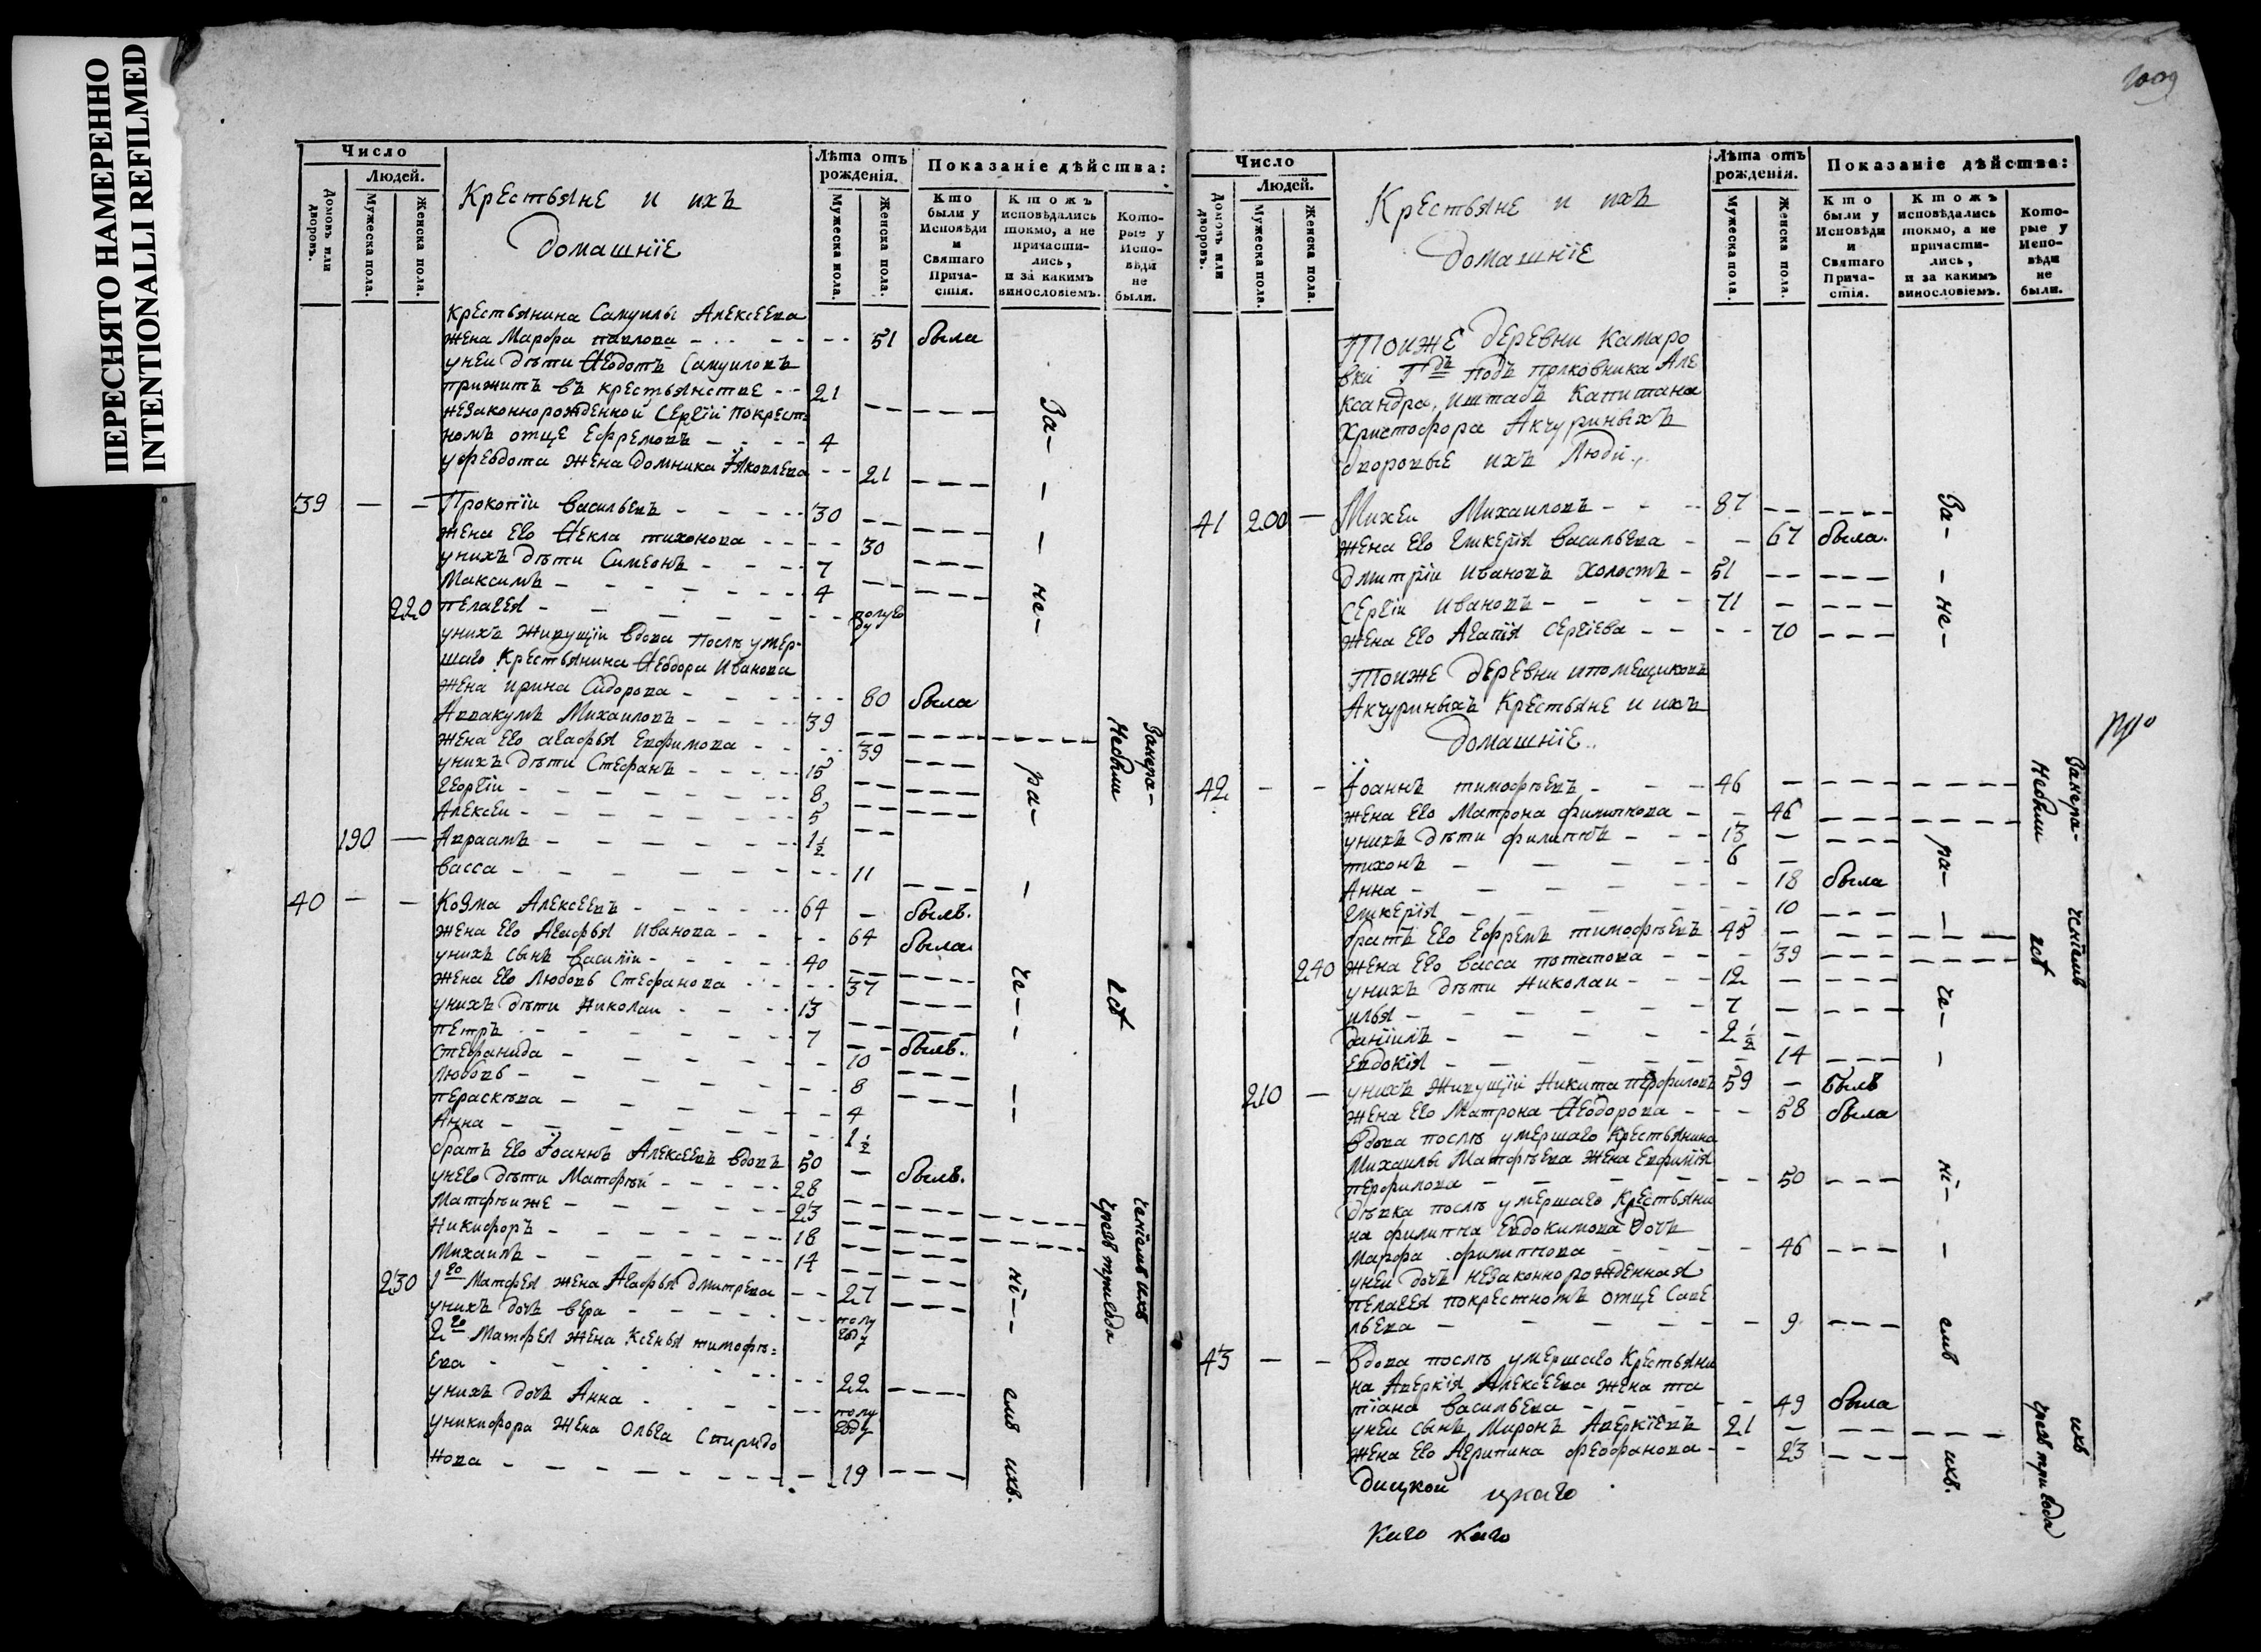 ПЕРЕСНЯТО НАМЕРЕННО
INTENTIONALLI REFILMED
Число
Людей.
Домовъ или дворовъ.
Мужеска пола.
Женска пола.
Крестьяне и ихъ
домашніе
Лѣта отъ рожденія.
Мужеска пола.
Женска пола.
Показаніе дѣйства:
Кто были у Исповѣди и Святаго Прича-стія.
Ктожъ исповѣдались токмо, а не причасти-лись, и за какимъ винословіемъ.
Кото-рые у Испо-вѣди не были.
крестьянина Самуилы Алексеева
жена Марфа павлова 51 была
унеи дѣти Ѳеодотъ Самуиловъ
прижитъ въ крестьянстве 21
незаконнорожденной Сергіи покрест=
номъ отце Ефремовъ 4
уфеодота жена домника Яковлева 21
39 Прокопіи васильевъ 30
жена его Ѳекла тихонова 30
унихъ дѣти Симеонъ 7
Максимъ 4
220 пелагея полугоду
унихъ живущіи вдова послѣ умер-
шаго крестьянина Ѳеодора Иванова
жена ирина Сидорова 80 была
Аввакумъ Михаиловъ 39
жена его агафья Евфимова 39
унихъ дѣти Стефанъ 15
георгіи 8
Алексеи 5
190 Авраамъ 1½
васса 11
40 Козма Алексеевъ 64 былъ.
жена его Агафья Иванова 64 была
унихъ сынъ василіи 40
жена его любовь Стефанова 37
унихъ дѣти Николаи 13
петръ 7 былъ.
Стефанида 10
любовь 8
пераскѣва 4
Анна 1½
братъ его Іоаннъ Алексеевъ вдовъ 50 былъ.
унего дѣти Матфѣй 28
Матфѣиже 23
Никифоръ 18
Михаилъ 14
230 1го Матфея жена Агафья дмитрева 27
унихъ дочь вера полугоду
2го Матфея жена Ксенья тимофѣ=
ева 22
унихъ дочь Анна полугоду
уникифора жена Ольга Спиридо
нова 19
За-не-ра-че-ні-емъ ихъ.
Занера-
Небыли
ченіемъ ихъ
чрезъ тригода
Число
Людей.
Домовъ или дворовъ.
Мужеска пола.
Женска пола.
Крестьяне и ихъ
домашніе
Лѣта отъ рожденія.
Мужеска пола.
Женска пола.
Показаніе дѣйства:
Кто были у Исповѣди и Святаго Прича-стія.
Ктожъ исповѣдались токмо, а не причасти-лись, и за какимъ винословіемъ.
Кото-рые у Испо-вѣди не были.
Тоиже деревни Камаро
вки Гдъ подъ полковника Але
ксандра, иштабъ Капитана
Христофора Акчуриныхъ
дворовые ихъ люди.
41 200 Михеи Михаиловъ 87
жена его гликерія васильева 67 была.
дмитріи ивановъ холостъ 51
Сергіи ивановъ 71
жена его Агапія Сергіева 70
Тоиже деревни ипомещиковъ
Акчуриныхъ Крестьяне и ихъ
домашніе.
42 Іоаннъ тимофѣевъ 46
жена его Матрона филиппова 46
унихъ дѣти филиппъ 13
тихонъ 6
Анна 18 была
гликерія 10
братъ его Ефремъ тимофѣевъ 45
240 жена его васса потапова 39
унихъ дѣти Николаи 12
илья 7
даніилъ 2½
евдокія 14
210 унихъ живущіи Никита перфиловъ 59 былъ
жена его Матрона Ѳеодорова 58 была
вдова послѣ умершаго крестьянина
Михаилы Матфѣева жена Евфимія
перфилова 50
дѣвка послѣ умершаго крестьяни
на филиппа Евдокимова дочь
Марфа филиппова 46
унеи дочь незаконнорожденная
пелагея покрестномъ отце Саве
льева 9
43 вдова послѣ умершаго Крестьяни
на Аверкія Алексеева жена та
тіана васильева 49 была
унеи сынъ Миронъ Аверкіевъ 21
жена его Агрипина феофанова 23
дицкой цкаго
каго каго
За-не-ра-че-ні-емъ ихъ.
Занера-
Небыли
ченіемъ
ихъ
чрезъ три года